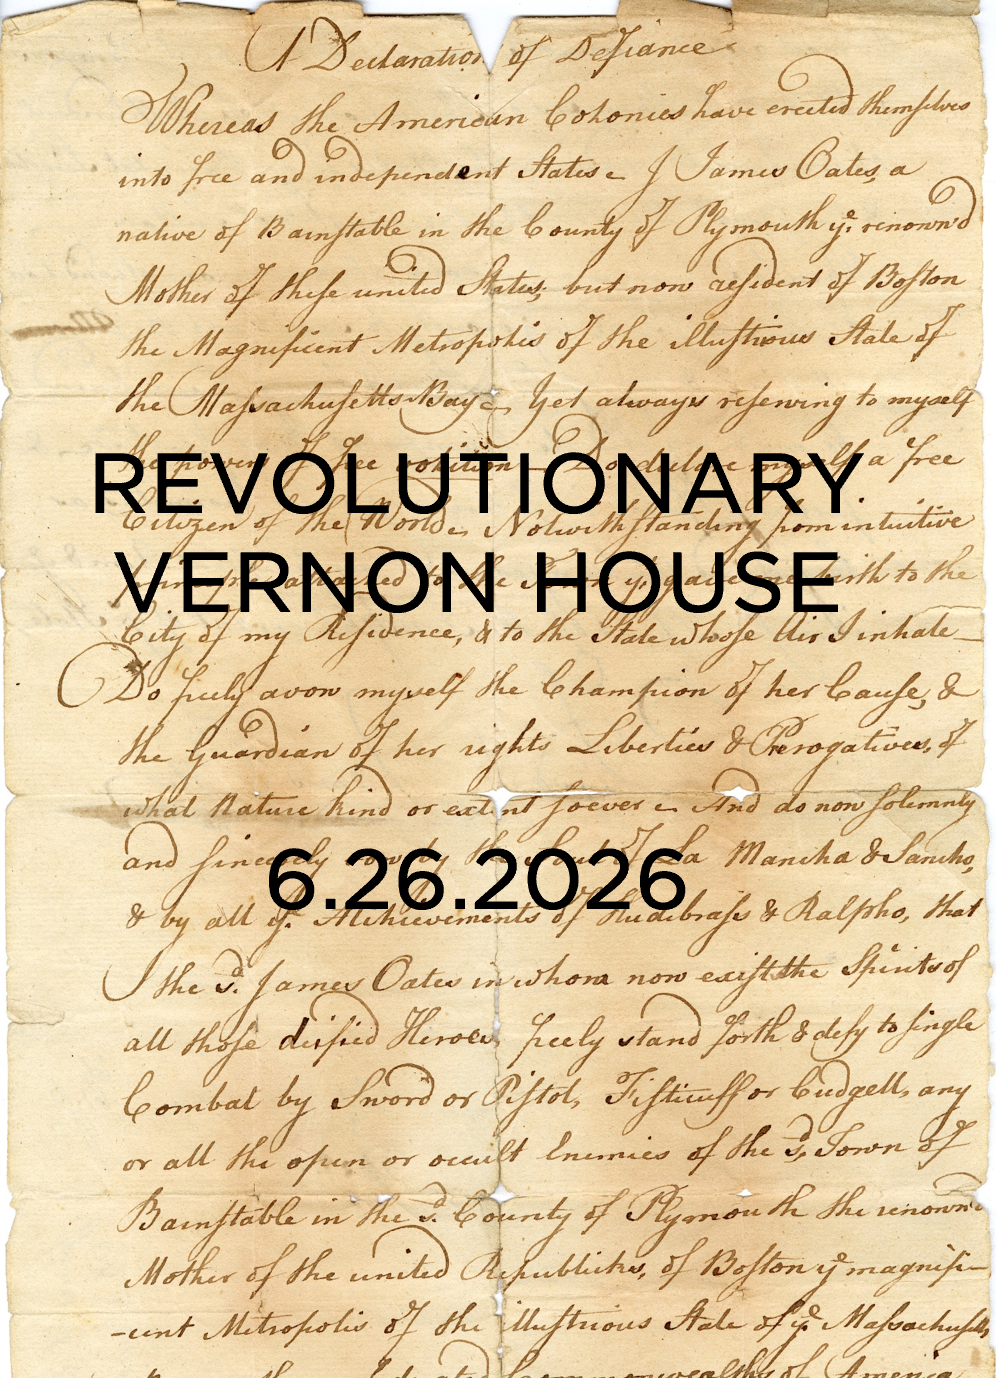 A Declaration of Defiance
Whereas the American Colonies have erected themselves
into free and independent States I James Oates, a
native of Barnstable in the County of Plymouth ye. renown'd
Mother of these united States; but now resident of Boston
the Magnificent Metropolis of the illustrious State of
the Massachusetts Bay Yet always reserving to myself
the powers of free volition Do declare myself a free
REVOLUTIONARY
Citizen of the World Notwithstanding from intuitive
attached to the Town yt. gave me birth to the
VERNON HOUSE
City of my Residence, & to the State whose Air I inhale
Do freely avow myself the Champion of her Cause, &
the Guardian of her rights Liberties & Prerogatives, of
what Nature kind or extent soever And do now solemnly
and sincerely vow by the of La Mancha & Sancho,
6.26.2026
& by all ye. Atchievements of Hudibrass & Ralpho, that
I the sd. James Oates in whom now exist the Spirits of
all those deified Heroes, freely stand forth & defy to single
Combat by Sword or Pistol, Fisticuff or Cudgell, any
or all the open or occult Enemies of the sd. Town of
Barnstable in the sd. County of Plymouth the renown'd
Mother of the united Republicks, of Boston ye magnifi-
-cent Metropolis of the illustrious State of ye Massachusetts,
Commonwealths of America